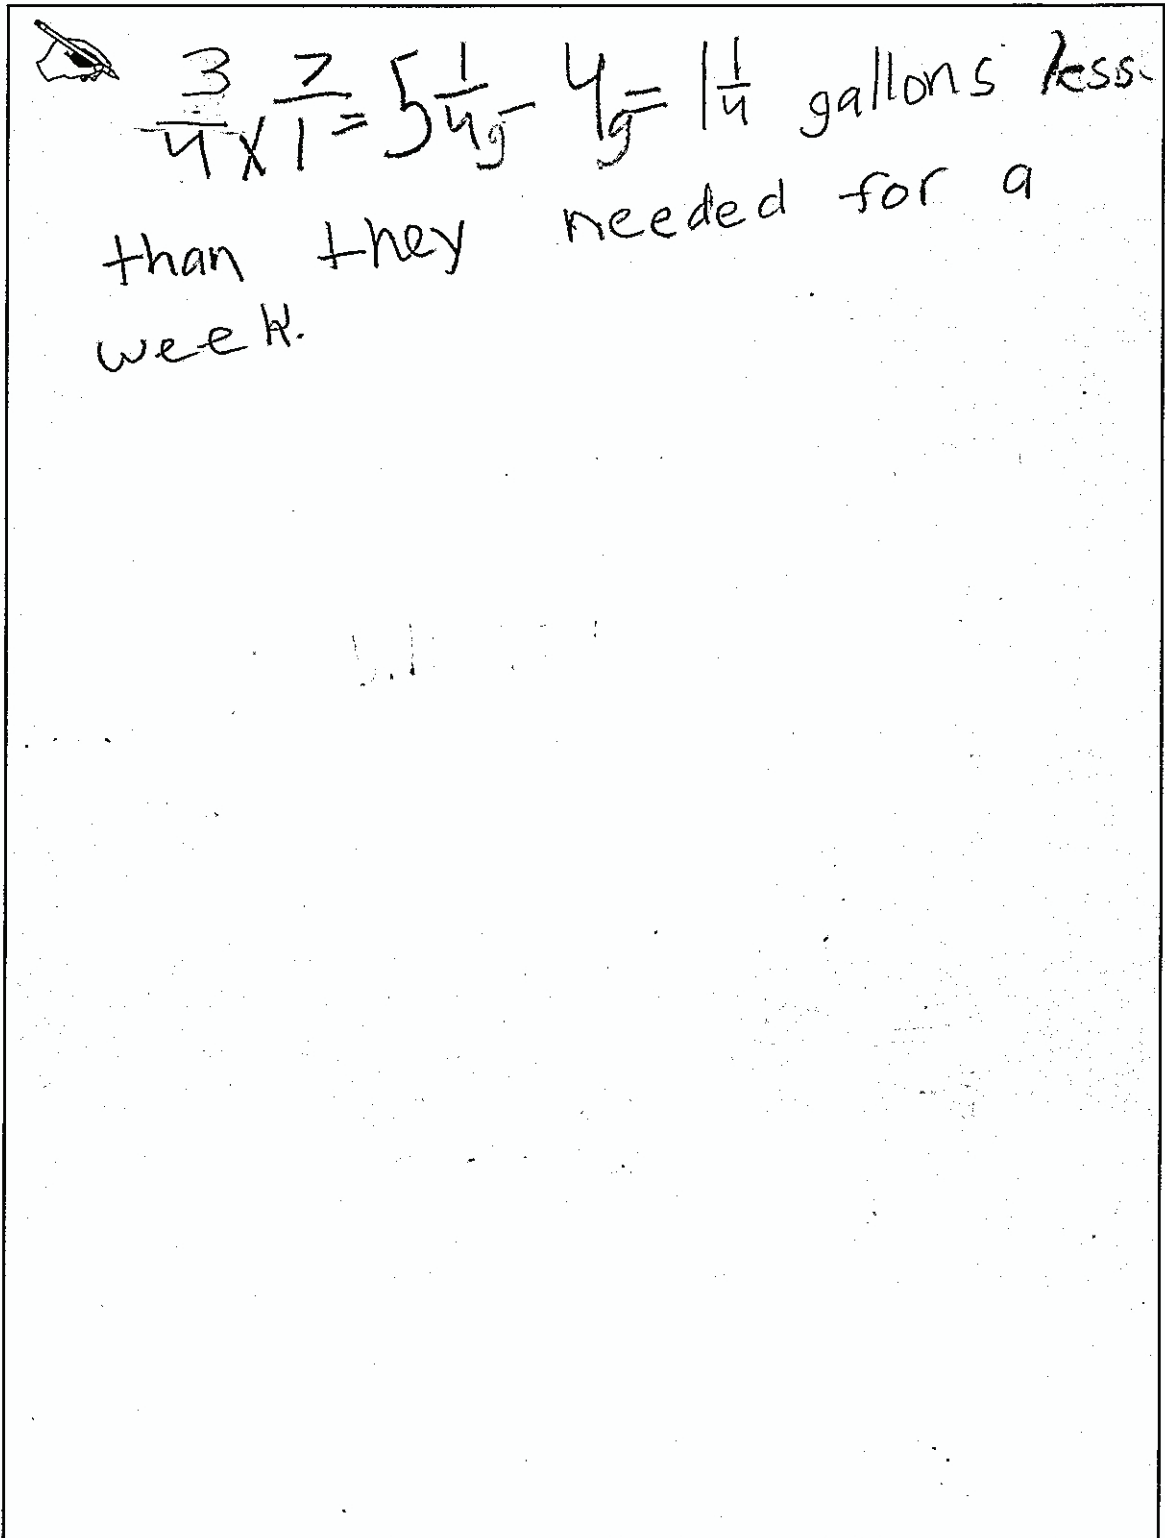 3/4 x 7/1 = 5 1/4 g - 4 g = 1 1/4 gallons less
than they needed for a
week.